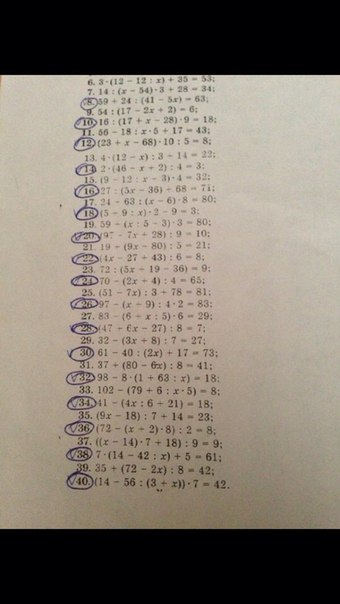 6. 3·(12 − 12 : x) + 35 = 53;
7. 14 : (x − 54)·3 + 28 = 34;
8. 59 + 24 : (41 − 5x) = 63;
9. 54 : (17 − 2x + 2) = 6;
10. 16 : (17 + x − 28)·9 = 18;
11. 56 − 18 : x·5 + 17 = 43;
12. (23 + x − 68)·10 : 5 = 8;
13. 4·(12 − x) : 3 + 14 = 22;
14. 2·(46 − x + 2) : 4 = 3;
15. (9 − 12 : x − 3)·4 = 32;
16. 27 : (5x − 36) + 68 = 71;
17. 24 − 63 : (x − 6)·8 = 80;
18. (5 − 9 : x)·2 − 9 = 3;
19. 59 − (x : 5 − 3)·3 = 80;
20. (97 − 7x + 28) : 9 = 10;
21. 19 + (9x − 80) : 5 = 21;
22. (4x − 27 + 43) : 6 = 8;
23. 72 : (5x + 19 − 36) = 9;
24. 70 − (2x + 4) : 4 = 65;
25. (51 − 7x) : 3 + 78 = 81;
26. 97 − (x + 9) : 4·2 = 83;
27. 83 − (6 + x : 5)·6 = 29;
28. (47 + 6x − 27) : 8 = 7;
29. 32 − (3x + 8) : 7 = 27;
30. 61 − 40 : (2x) + 17 = 73;
31. 37 + (80 − 6x) : 8 = 41;
32. 98 − 8·(1 + 63 : x) = 18;
33. 102 − (79 + 6 : x·5) = 8;
34. 41 − (4x : 6 + 21) = 18;
35. (9x − 18) : 7 + 14 = 23;
36. (72 − (x + 2)·8) : 2 = 8;
37. ((x − 14)·7 + 18) : 9 = 9;
38. 7·(14 − 42 : x) + 5 = 61;
39. 35 + (72 − 2x) : 8 = 42;
40. (14 − 56 : (3 + x))·7 = 42.